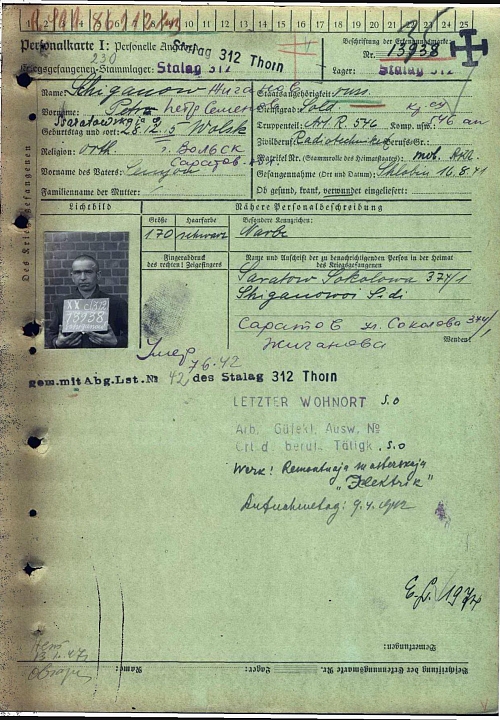 1 2 3 4 5 6 7 8 9 10 11 12 13 14 15 16 17 18 19 20 21 22 23 24 25
Personalkarte I: Personelle Angaben
Stalag 312 Thorn
Beschriftung der Erkennungsmarke
Nr. 13938
230
Kriegsgefangenen-Stammlager: Stalag 312
Lager: Stalag 312
Des Kriegsgefangenen
Name: Shiganow Жиганов
Staatsangehörigkeit: russ.
Vorname: Petr Петр Семенов
Dienstgrad: Sold.
Saratowskaja
Truppenteil: Art. R. 546 Komp. usw.: 546 ап
Geburtstag und -ort: 28.12.15 Wolsk
Zivilberuf: Radiotechniker Berufs-Gr.:
Religion: orth. г. Вольск
Matrikel Nr. (Stammrolle des Heimatstaates): mob.
Саратов. обл.
Vorname des Vaters: Semjon
Gefangennahme (Ort und Datum): Shlobin 16.8.41
Familienname der Mutter:
Ob gesund, krank, verwundet eingeliefert:
Lichtbild
Nähere Personalbeschreibung
Größe Haarfarbe Besondere Kennzeichen:
1.70 schwarz Narbe
Fingerabdruck
des rechten! Zeigefingers
Name und Anschrift der zu benachrichtigenden Person in der Heimat
des Kriegsgefangenen
Saratow Sokolowa 374/1
Shiganowoi Lidi
13938
Саратов ул. Соколова 374/1
Жиганова
Wenden!
Умер 7.6.42
gem. mit Abg. Lst. № 42 des Stalag 312 Thorn
LETZTER WOHNORT s.o
Arb. Güfekl. Ausw. №
Ort d. berufl. Tätigk. s.o
Werk: Remontnaja masterskaja
"Elektrik"
Aufnahmetag: 9.4.1942
Bemerkungen:
Beschriftung der Erkennungsmarke Nr.
Lager:
Name: